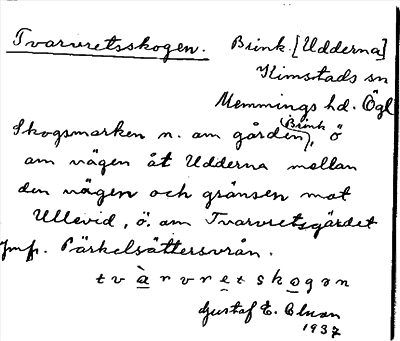 Tvarvretsskogen. Brink. [Udderna]
Kimstads sn
Memmings hd. Ögl
Skogsmarken n. om gården (Brink), ö
om vägen åt Udderna mellan
den vägen och gränsen mot
Ullevid, ö. om Tvarvretsgärdet
Jmf. Pärkelsättersvrån.
tvàrvretskogən
Gustaf E. Olson
1937